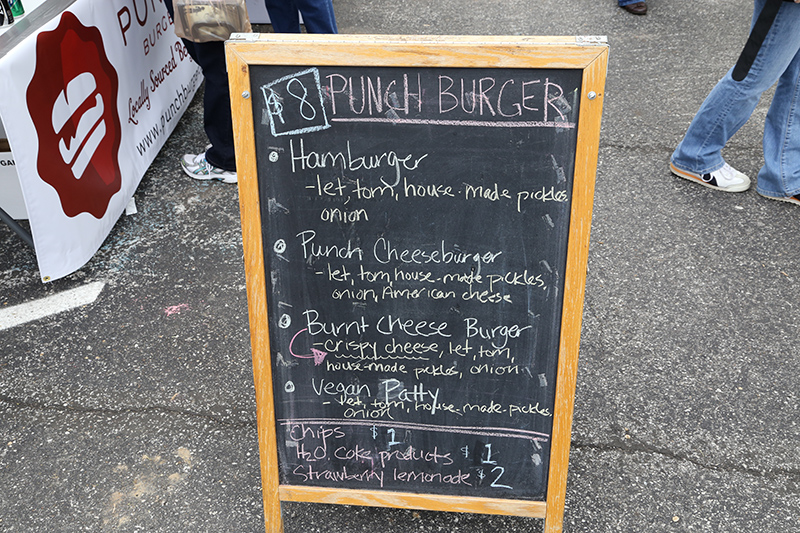 PUN
BURG
Locally Sourced Be
www.punchburg
$8 PUNCH BURGER
Hamburger
-let, tom, house-made pickles,
onion
Punch Cheeseburger
-let, tom, house-made pickles,
onion, American cheese
Burnt Cheese Burger
-crispy cheese, let, tom,
house-made pickles, onion
Vegan Patty
-let, tom, house-made pickles,
onion
chips $1
H2O, Coke products $1
Strawberry lemonade $2